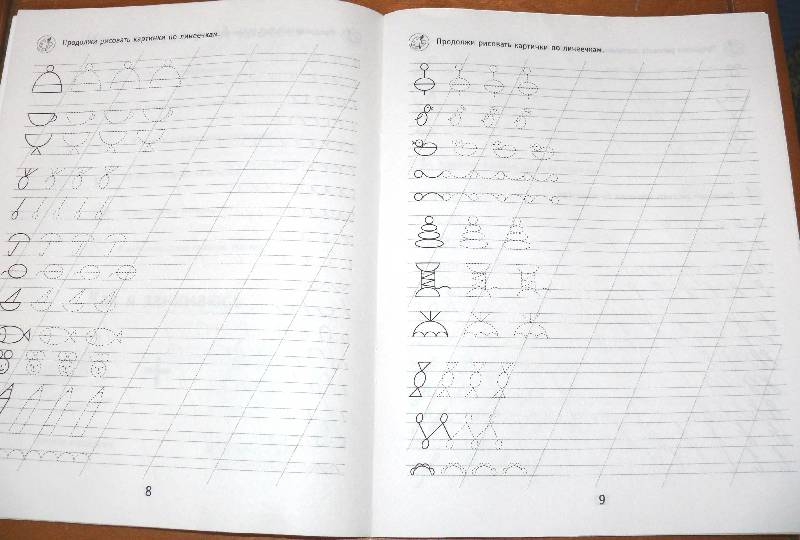 Продолжи рисовать картинки по линеечкам.
8
Продолжи рисовать картинки по линеечкам.
9